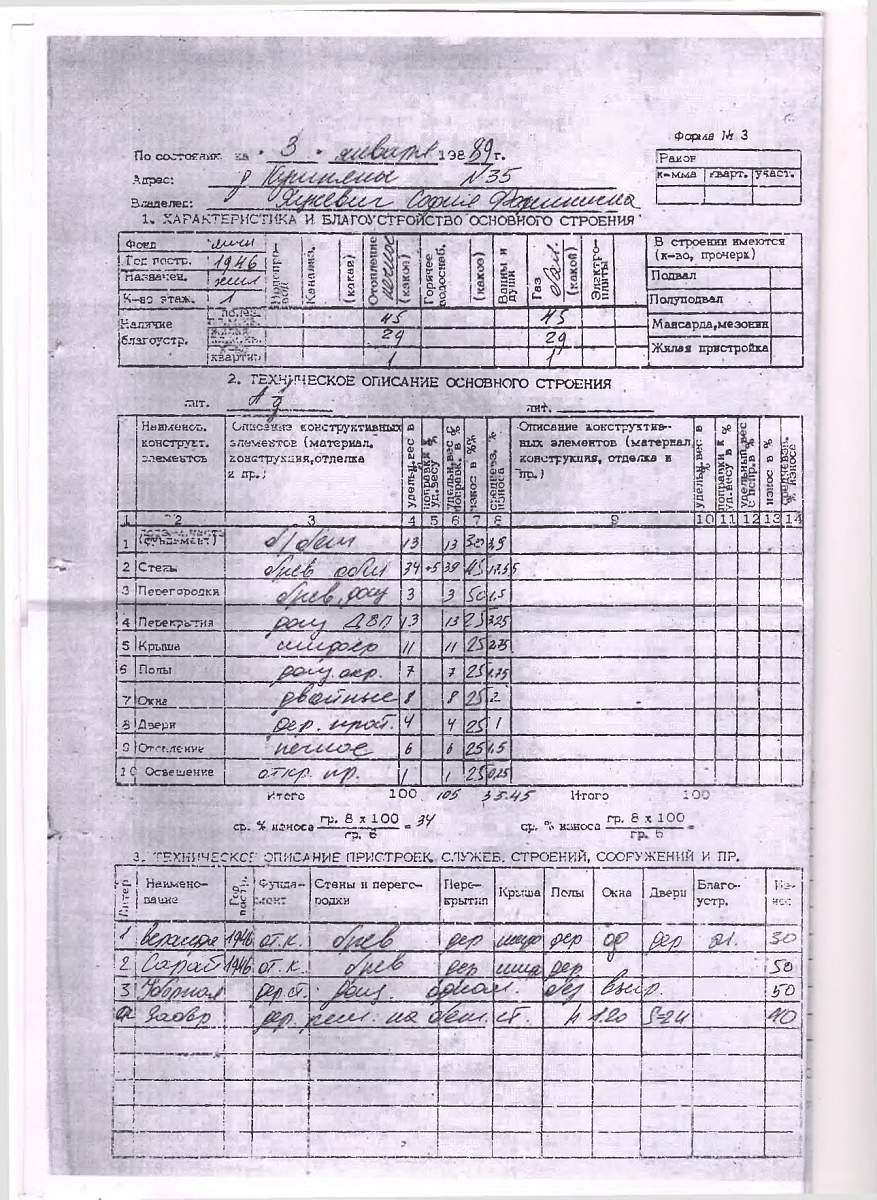 Форма № 3
По состоянию на "3" января 198 89 г.
Район
к-мма кварт. участ.
Адрес: д №35
Владелец:
1. ХАРАКТЕРИСТИКА И БЛАГОУСТРОЙСТВО ОСНОВНОГО СТРОЕНИЯ
Фонд личн
Год постр. 1946
Назначен. жил
К-во этаж. 1
Водопровод
Канализ. (какая)
Отопление печное (какое)
Горячее водоснаб. (какое)
Ванны и души
Газ бал. (какой)
Электроплиты
В строении имеются (к-во, прочерк)
Подвал
Полуподвал
Мансарда,мезонин
Жилая пристройка
Наличие благоустр.
45 45
29 29
квартир 1 1
2. ТЕХНИЧЕСКОЕ ОПИСАНИЕ ОСНОВНОГО СТРОЕНИЯ
лит. А лит.
Наименов. конструкт. элементов
Описание конструктивных элементов (материал, конструкция,отделка и пр.)
удельн.вес в %
поправки к уд.весу %
удельн.вес с поправк. в %
износ в %
средневз. % износа
Описание конструктивных элементов (материал, конструкция, отделка и пр.)
удельн.вес в %
поправки к уд.весу в %
удельный вес с испр.в %
износ в %
средневзв. % износа
1 2 3 4 5 6 7 8 9 10 11 12 13 14
1 (фундамент) б/бет 13 13 30 3,9
2 Стены брев обш 34 +5 39 45 17.55
3 Перегородки брев, дощ 3 3 50 1,5
4 Перекрытия дощ ДВП 13 13 25 3.25
5 Крыша шифер 11 11 25 2.75
6 Полы дощ. окр. 7 7 25 1.75
7 Окна двойные 8 8 25 2
8 Двери дер. 4 4 25 1
9 Отопление печное 6 6 25 1.5
10 Освещение откр. пр. 1 1 25 0,25
Итого 100 105 35.45 Итого 100
ср. % износа гр. 8 х 100 / гр. 6 = 34 ср. % износа гр. 8 х 100 / гр. 6 =
3. ТЕХНИЧЕСКОЕ ОПИСАНИЕ ПРИСТРОЕК, СЛУЖЕБ. СТРОЕНИЙ, СООРУЖЕНИЙ И ПР.
Литер Наименование Год постр. Фундамент Стены и перегородки Перекрытия Крыша Полы Окна Двери Благоустр. Износ
1 Веранда 1946 от.к. брев дер шифер дер од дер эл. 30
2 Сарай 1946 от.к. брев дер дер 50
3 Уборная дер.ст. дощ. однок. без выгр. 50
дер. реш. на бет.ст. h 1.20 S=24 40